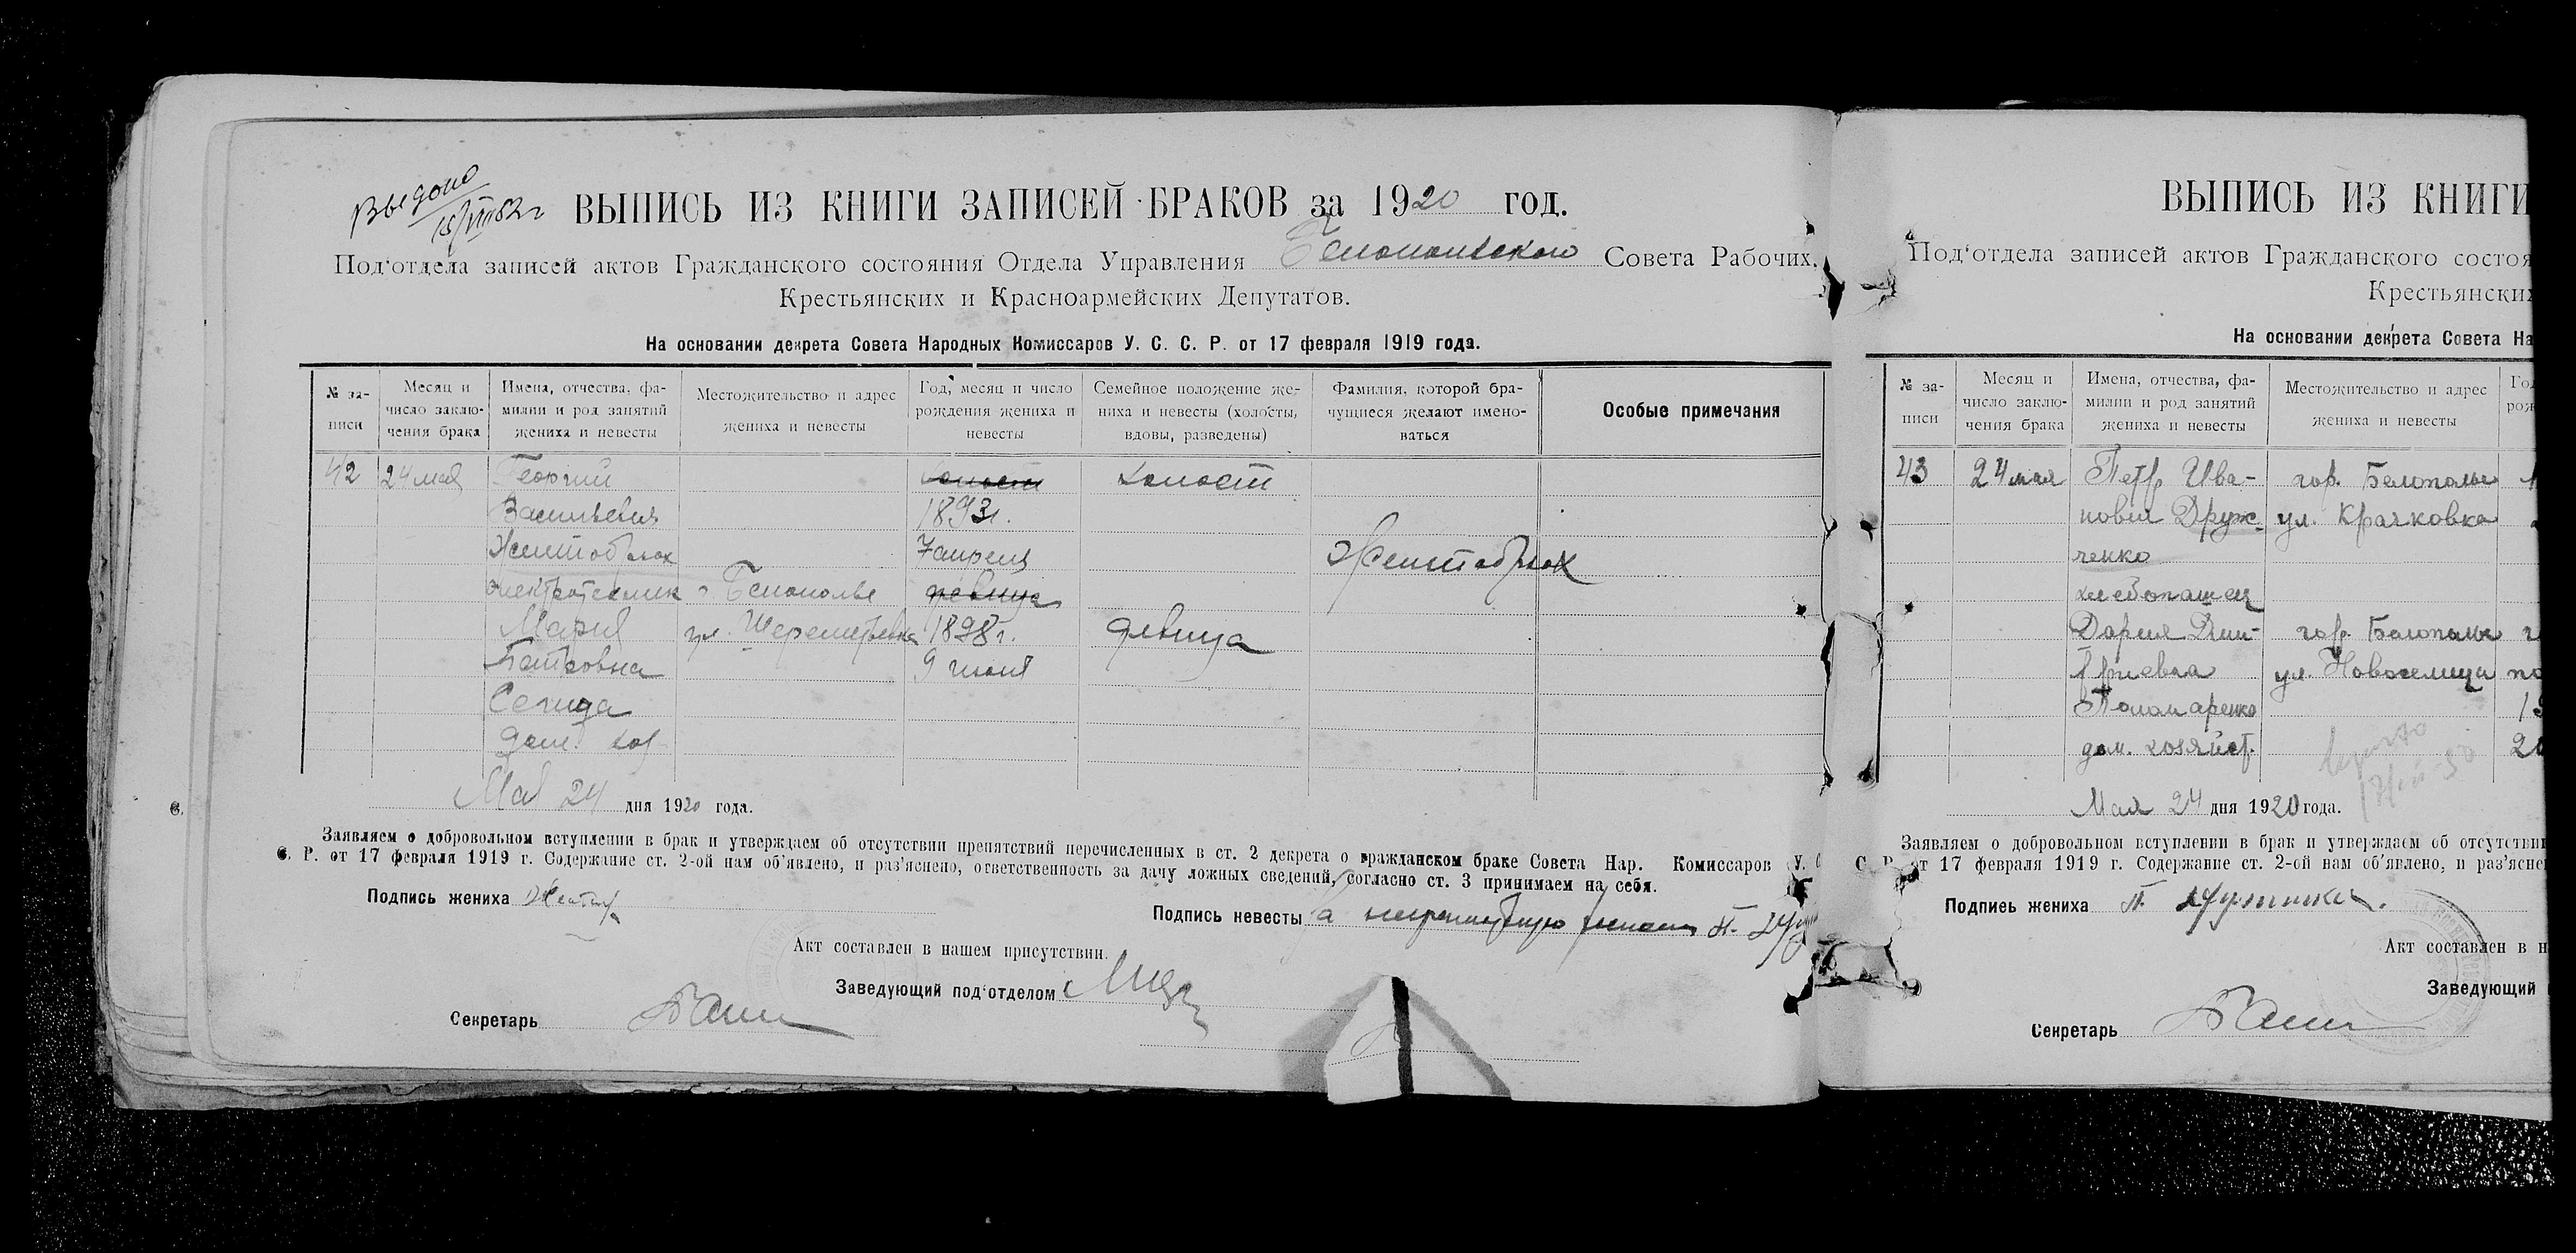 Выдано
15/VIII 52 г
ВЫПИСЬ ИЗ КНИГИ ЗАПИСЕЙ БРАКОВ за 1920 год.
Под‘отдела записей актов Гражданского состояния Отдела Управления Белопольского Совета Рабочих,
Крестьянских и Красноармейских Депутатов.
На основании декрета Совета Народных Комиссаров У. С. С. Р. от 17 февраля 1919 года.
№ за-
писи
Месяц и
число заклю-
чения брака
Имена, отчества, фа-
милии и род занятий
жениха и невесты
Местожительство и адрес
жениха и невесты
Год, месяц и число
рождения жениха и
невесты
Семейное положение же-
ниха и невесты (холосты,
вдовы, разведены)
Фамилия, которой бра-
чущиеся желают имено-
ваться
Особые примечания
42 24 мая Георгий холост холост
Васильевич 1893 г.
Желтобрюх 7 апреля Желтобрюх
электротехник г. Белополье девица
Мария ул. Шереметьевка 1898 г. девица
Петровна 9 июня
Сегида
дом. хоз
Мая 24 дня 1920 года.
Заявляем о добровольном вступлении в брак и утверждаем об отсутствии препятствий перечисленных в ст. 2 декрета о гражданском браке Совета Нар. Комиссаров У. С
С. Р. от 17 февраля 1919 г. Содержание ст. 2-ой нам об‘явлено, и раз‘яснено, ответственность за дачу ложных сведений, согласно ст. 3 принимаем на себя.
Подпись жениха
Подпись невесты а неграмотную
Акт составлен в нашем присутствии.
Заведующий под‘отделом
Секретарь
ВЫПИСЬ ИЗ КНИГИ
Под‘отдела записей актов Гражданского состоя
Крестьянских
На основании декрета Совета На
№ за-
писи
Месяц и
число заклю-
чения брака
Имена, отчества, фа-
милии и род занятий
жениха и невесты
Местожительство и адрес
жениха и невесты
Год
рож
43 24 мая Петр Ива- гор. Белополье
нович Друж- ул. Крачковка
ченко
хлебопашец
Дария Дми- гор. Белополье
триевна ул. Новоселица
Пономаренко 19
дом. хозяйст. 20
Мая 24 дня 1920 года.
Заявляем о добровольном вступлении в брак и утверждаем об отсутствии
С. Р. от 17 февраля 1919 г. Содержание ст. 2-ой нам об‘явлено, и раз‘ясне
Подпись жениха П.
Акт составлен в н
Заведующий
Секретарь